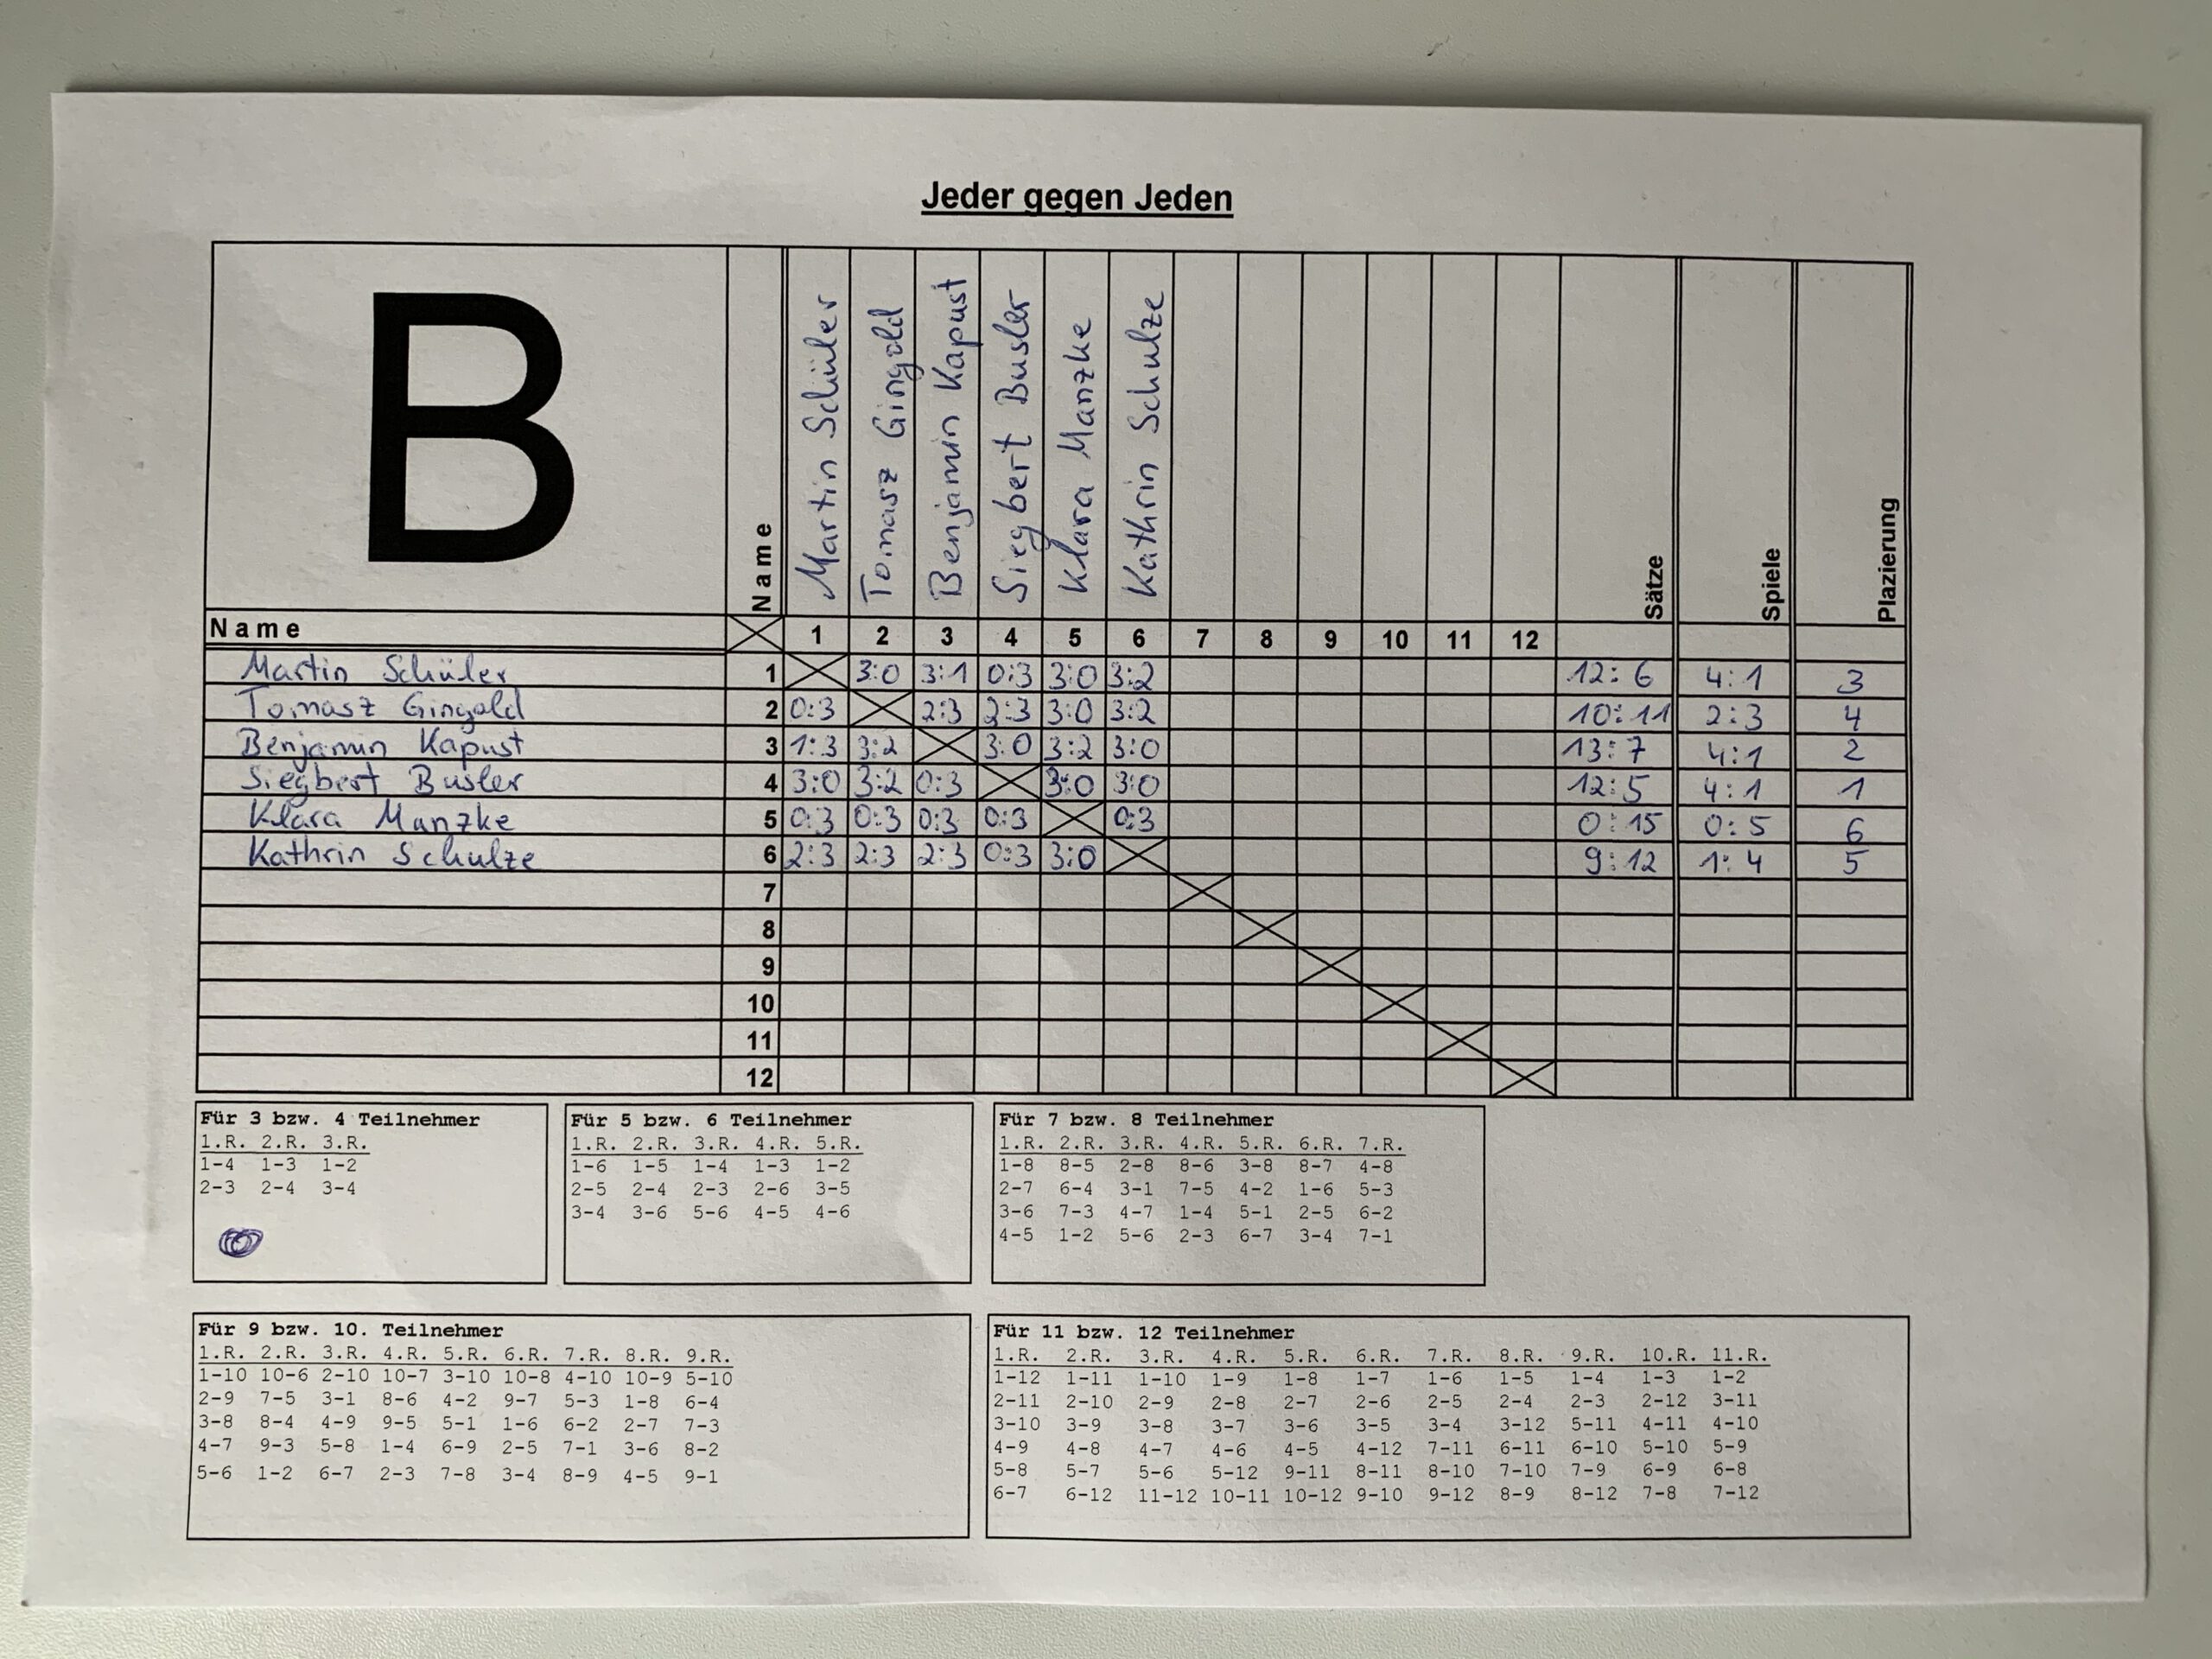 Jeder gegen Jeden
B
Name
Martin Schüler
Tomasz Gingold
Benjamin Kapust
Siegbert Busler
Klara Manzke
Kathrin Schulze
Sätze
Spiele
Plazierung
Name 1 2 3 4 5 6 7 8 9 10 11 12
Martin Schüler 1 3:0 3:1 0:3 3:0 3:2 12:6 4:1 3
Tomasz Gingold 2 0:3 2:3 2:3 3:0 3:2 10:11 2:3 4
Benjamin Kapust 3 1:3 3:2 3:0 3:2 3:0 13:7 4:1 2
Siegbert Busler 4 3:0 3:2 0:3 3:0 3:0 12:5 4:1 1
Klara Manzke 5 0:3 0:3 0:3 0:3 0:3 0:15 0:5 6
Kathrin Schulze 6 2:3 2:3 2:3 0:3 3:0 9:12 1:4 5
7
8
9
10
11
12
Für 3 bzw. 4 Teilnehmer
1.R. 2.R. 3.R.
1-4 1-3 1-2
2-3 2-4 3-4
Für 5 bzw. 6 Teilnehmer
1.R. 2.R. 3.R. 4.R. 5.R.
1-6 1-5 1-4 1-3 1-2
2-5 2-4 2-3 2-6 3-5
3-4 3-6 5-6 4-5 4-6
Für 7 bzw. 8 Teilnehmer
1.R. 2.R. 3.R. 4.R. 5.R. 6.R. 7.R.
1-8 8-5 2-8 8-6 3-8 8-7 4-8
2-7 6-4 3-1 7-5 4-2 1-6 5-3
3-6 7-3 4-7 1-4 5-1 2-5 6-2
4-5 1-2 5-6 2-3 6-7 3-4 7-1
Für 9 bzw. 10. Teilnehmer
1.R. 2.R. 3.R. 4.R. 5.R. 6.R. 7.R. 8.R. 9.R.
1-10 10-6 2-10 10-7 3-10 10-8 4-10 10-9 5-10
2-9 7-5 3-1 8-6 4-2 9-7 5-3 1-8 6-4
3-8 8-4 4-9 9-5 5-1 1-6 6-2 2-7 7-3
4-7 9-3 5-8 1-4 6-9 2-5 7-1 3-6 8-2
5-6 1-2 6-7 2-3 7-8 3-4 8-9 4-5 9-1
Für 11 bzw. 12 Teilnehmer
1.R. 2.R. 3.R. 4.R. 5.R. 6.R. 7.R. 8.R. 9.R. 10.R. 11.R.
1-12 1-11 1-10 1-9 1-8 1-7 1-6 1-5 1-4 1-3 1-2
2-11 2-10 2-9 2-8 2-7 2-6 2-5 2-4 2-3 2-12 3-11
3-10 3-9 3-8 3-7 3-6 3-5 3-4 3-12 5-11 4-11 4-10
4-9 4-8 4-7 4-6 4-5 4-12 7-11 6-11 6-10 5-10 5-9
5-8 5-7 5-6 5-12 9-11 8-11 8-10 7-10 7-9 6-9 6-8
6-7 6-12 11-12 10-11 10-12 9-10 9-12 8-9 8-12 7-8 7-12